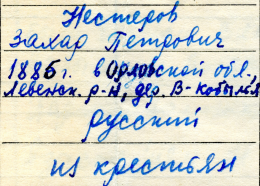 Нестеров
Захар Петрович
1886г. в Орловской обл.,
Левенск. р-н, дер. В-Кобылья
русский
из крестьян